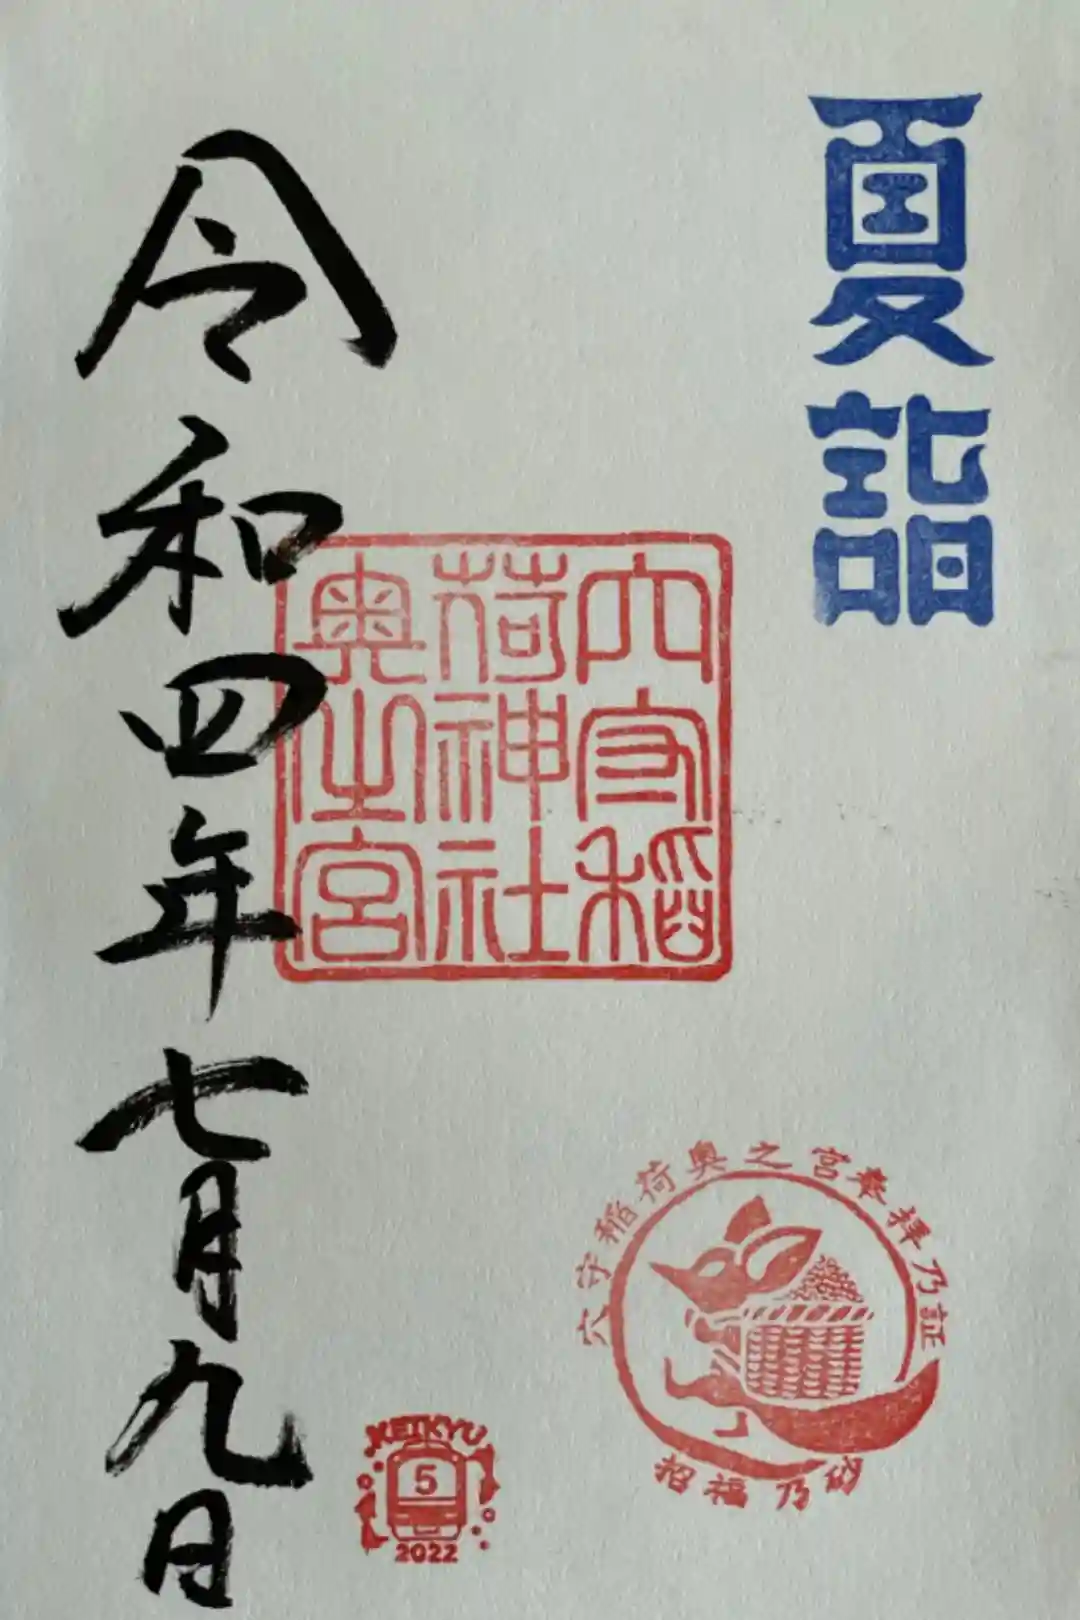 夏詣
穴守稲
荷神社
奥之宮
令和四年七月九日
穴守稲荷奥之宮奉拝乃証
招福乃砂
KEIKYU
5
2022